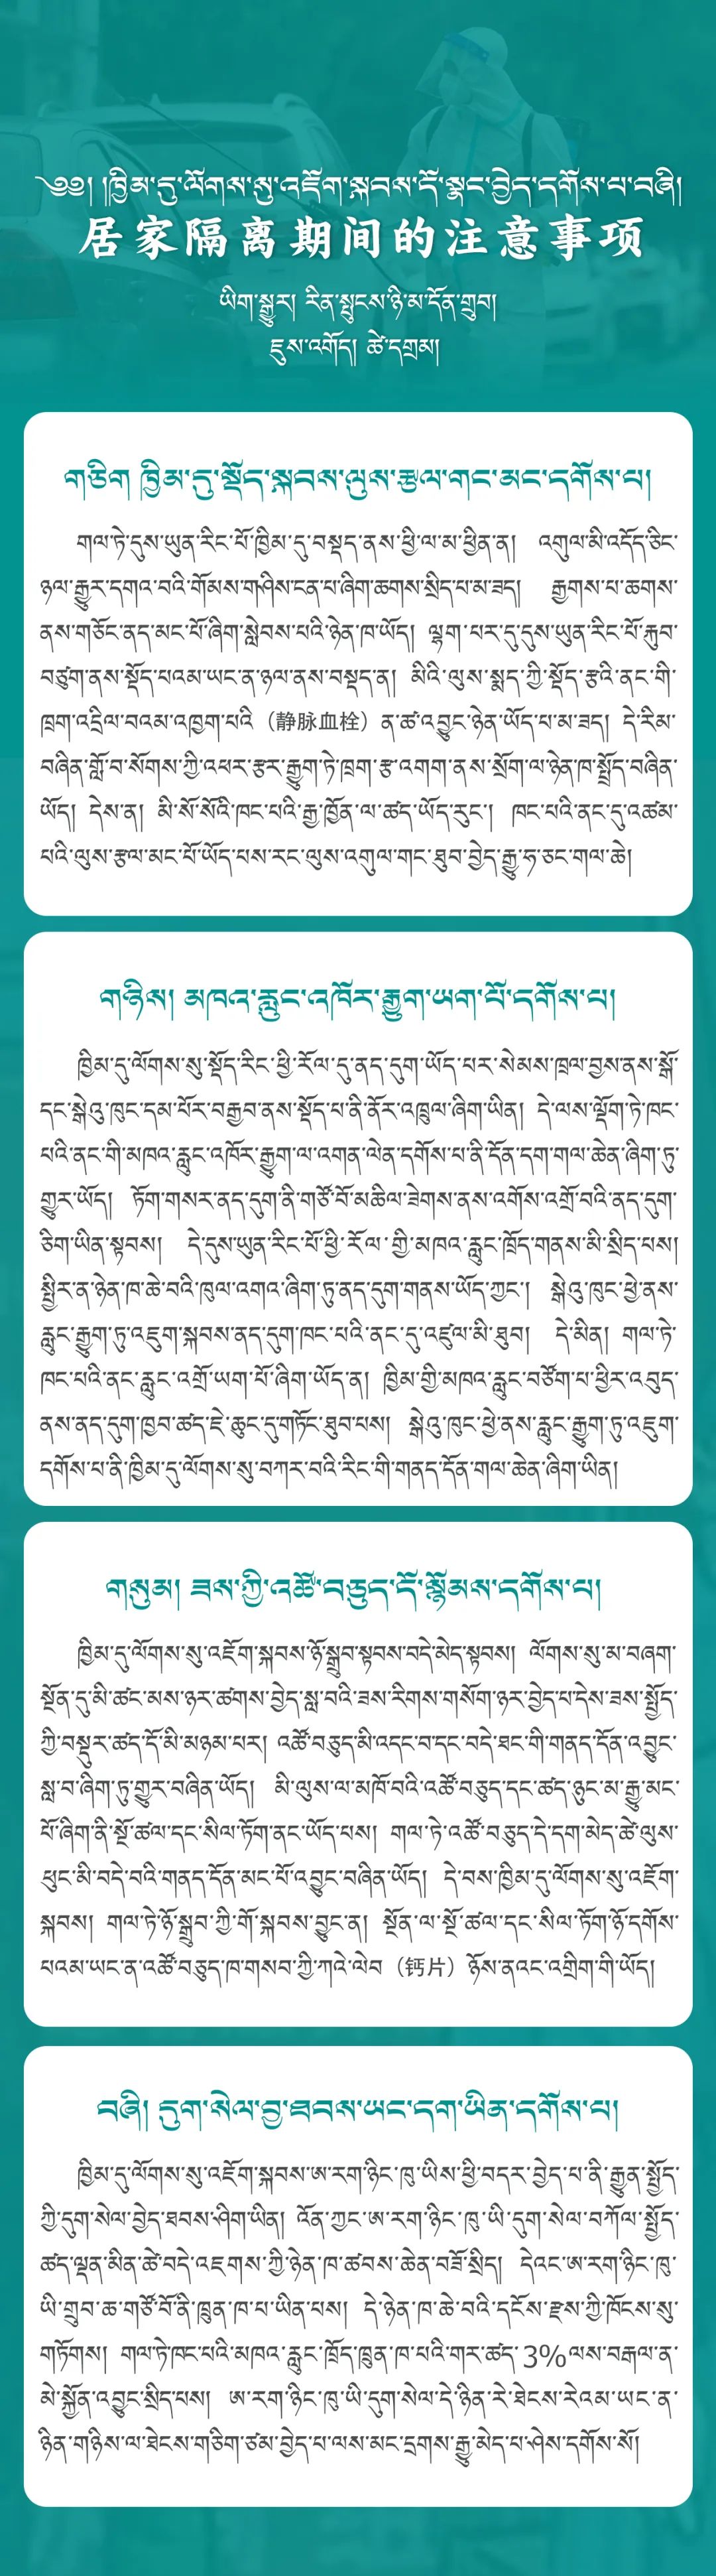 ༄༅། །ཁྱིམ་དུ་ལོགས་སུ་འཇོག་སྐབས་དོ་སྣང་བྱེད་དགོས་པ་བཞི།
居家隔离期间的注意事项
ཡིག་སྒྱུར། རིན་སྤུངས་ཉི་མ་དོན་གྲུབ།
ཇུས་འགོད། ཚེ་དགྲམ།
གཅིག ཁྱིམ་དུ་སྡོད་སྐབས་ལུས་རྩལ་གང་མང་དགོས་པ།
གལ་ཏེ་དུས་ཡུན་རིང་པོ་ཁྱིམ་དུ་བསྡད་ནས་ཕྱི་ལ་མ་ཕྱིན་ན། འགུལ་མི་འདོད་ཅིང་
ཉལ་རྒྱུར་དགའ་བའི་གོམས་གཤིས་ངན་པ་ཞིག་ཆགས་སྲིད་པ་མ་ཟད། རྒྱགས་པ་ཆགས་
ནས་གཅོང་ནད་མང་པོ་ཞིག་སླེབས་པའི་ཉེན་ཁ་ཡོད། ལྷག་པར་དུ་དུས་ཡུན་རིང་པོ་རྐུབ་
བཙུག་ནས་སྡོད་པའམ་ཡང་ན་ཉལ་ནས་བསྡད་ན། མིའི་ལུས་སྨད་ཀྱི་སྡོད་རྩའི་ནང་གི་
ཁྲག་འདྲིལ་བའམ་འཁྱག་པའི（静脉血栓）ན་ཚ་འབྱུང་ཉེན་ཡོད་པ་མ་ཟད། དེ་རིམ་
བཞིན་གློ་བ་སོགས་ཀྱི་འཕར་རྩར་རྒྱུག་ཏེ་ཁྲག་རྩ་འགག་ནས་སྲོག་ལ་ཉེན་ཁ་སྤྲོད་བཞིན་
ཡོད། དེས་ན། མི་སོ་སོའི་ཁང་པའི་རྒྱ་ཁྱོན་ལ་ཚད་ཡོད་རུང་། ཁང་པའི་ནང་དུ་འཚམ་
པའི་ལུས་རྩལ་མང་པོ་ཡོད་པས་རང་ལུས་འགུལ་གང་ཐུབ་བྱེད་རྒྱུ་ཧ་ཅང་གལ་ཆེ།
གཉིས། མཁའ་རླུང་འཁོར་རྒྱུག་ཡག་པོ་དགོས་པ།
ཁྱིམ་དུ་ལོགས་སུ་སྡོད་རིང་ཕྱི་རོལ་དུ་ནད་དུག་ཡོད་པར་སེམས་ཁྲལ་བྱས་ནས་སྒོ་
དང་སྒེའུ་ཁུང་དམ་པོར་བརྒྱབ་ནས་སྡོད་པ་ནི་ནོར་འཁྲུལ་ཞིག་ཡིན། དེ་ལས་ལྡོག་ཏེ་ཁང་
པའི་ནང་གི་མཁའ་རླུང་འཁོར་རྒྱུག་ལ་འགན་ལེན་དགོས་པ་ནི་དོན་དག་གལ་ཆེན་ཞིག་ཏུ་
གྱུར་ཡོད། ཏོག་གསར་ནད་དུག་ནི་གཙོ་བོ་མཆིལ་ཟེགས་ནས་འགོས་འགྲོ་བའི་ནད་དུག་
ཅིག་ཡིན་སྟབས། དེ་དུས་ཡུན་རིང་པོ་ཕྱི་རོལ་གྱི་མཁའ་རླུང་ཁྲོད་གནས་མི་སྲིད་པས།
སྤྱིར་ན་ཉེན་ཁ་ཆེ་བའི་ཁུལ་འགའ་ཞིག་ཏུ་ནད་དུག་གནས་ཡོད་ཀྱང་། སྒེའུ་ཁུང་ཕྱེ་ནས་
རླུང་རྒྱུག་ཏུ་འཇུག་སྐབས་ནད་དུག་ཁང་པའི་ནང་དུ་འཛུལ་མི་ཐུབ། དེ་མིན། གལ་ཏེ་
ཁང་པའི་ནང་རླུང་འགྲོ་ཡག་པོ་ཞིག་ཡོད་ན། ཁྱིམ་གྱི་མཁའ་རླུང་བཙོག་པ་ཕྱིར་འབུད་
ནས་ནད་དུག་ཁྱབ་ཚད་ཇེ་ཆུང་དུ་གཏོང་ཐུབ་པས། སྒེའུ་ཁུང་ཕྱེ་ནས་རླུང་རྒྱུག་ཏུ་འཇུག་
དགོས་པ་ནི་ཁྱིམ་དུ་ལོགས་སུ་བཀར་བའི་རིང་གི་གནད་དོན་གལ་ཆེན་ཞིག་ཡིན།
གསུམ། ཟས་ཀྱི་འཚོ་བཅུད་དོ་སྙོམས་དགོས་པ།
ཁྱིམ་དུ་ལོགས་སུ་འཇོག་སྐབས་ཉོ་སྒྲུབ་སྟབས་བདེ་མེད་སྟབས། ལོགས་སུ་མ་བཞག་
སྔོན་དུ་མི་ཚང་མས་ཉར་ཚགས་བྱེད་སླ་བའི་ཟས་རིགས་གསོག་ཉར་བྱེད་པ་དེས་ཟས་སྤྱོད་
ཀྱི་བསྡུར་ཚད་དོ་མི་མཉམ་པར། འཚོ་བཅུད་མི་འདང་བ་དང་བདེ་ཐང་གི་གནད་དོན་འབྱུང་
སླ་བ་ཞིག་ཏུ་གྱུར་བཞིན་ཡོད། མི་ལུས་ལ་མཁོ་བའི་འཚོ་བཅུད་དང་ཚད་ཉུང་མ་རྒྱུ་མང་
པོ་ཞིག་ནི་སྔོ་ཚལ་དང་སིལ་ཏོག་ནང་ཡོད་པས། གལ་ཏེ་འཚོ་བཅུད་དེ་དག་མེད་ཚེ་ལུས་
ཕུང་མི་བདེ་བའི་གནད་དོན་མང་པོ་འབྱུང་བཞིན་ཡོད། དེ་བས་ཁྱིམ་དུ་ལོགས་སུ་འཇོག་
སྐབས། གལ་ཏེ་ཉོ་སྒྲུབ་ཀྱི་གོ་སྐབས་བྱུང་ན། སྔོན་ལ་སྔོ་ཚལ་དང་སིལ་ཏོག་ཉོ་དགོས་
པའམ་ཡང་ན་འཚོ་བཅུད་ཁ་གསབ་ཀྱི་ཀའེ་ལེབ（钙片）ཉོས་ནའང་འགྲིག་གི་ཡོད།
བཞི། དུག་སེལ་བྱ་ཐབས་ཡང་དག་ཡིན་དགོས་པ།
ཁྱིམ་དུ་ལོགས་སུ་འཇོག་སྐབས་ཨ་རག་ཉིང་ཁུ་ཡིས་ཕྱི་བདར་བྱེད་པ་ནི་རྒྱུན་སྤྱོད་
ཀྱི་དུག་སེལ་བྱེད་ཐབས་ཤིག་ཡིན། འོན་ཀྱང་ཨ་རག་ཉིང་ཁུ་ཡི་དུག་སེལ་བཀོལ་སྤྱོད་
ཚད་ལྡན་མིན་ཚེ་བདེ་འཇགས་ཀྱི་ཉེན་ཁ་ཚབས་ཆེན་བཟོ་སྲིད། དེའང་ཨ་རག་ཉིང་ཁུ་
ཡི་གྲུབ་ཆ་གཙོ་བོ་ནི་ཁྲུན་ཁ་པ་ཡིན་པས། དེ་ཉེན་ཁ་ཆེ་བའི་དངོས་རྫས་ཀྱི་ཁོངས་སུ་
གཏོགས། གལ་ཏེ་ཁང་པའི་མཁའ་རླུང་ཁྲོད་ཁྲུན་ཁ་པའི་གར་ཚད་3%ལས་བརྒལ་ན་
མེ་སྐྱོན་འབྱུང་སྲིད་པས། ཨ་རག་ཉིང་ཁུ་ཡི་དུག་སེལ་དེ་ཉིན་རེ་ཐེངས་རེའམ་ཡང་ན་
ཉིན་གཉིས་ལ་ཐེངས་གཅིག་ཙམ་བྱེད་པ་ལས་མང་དྲགས་རྒྱུ་མེད་པ་ཤེས་དགོས་སོ།